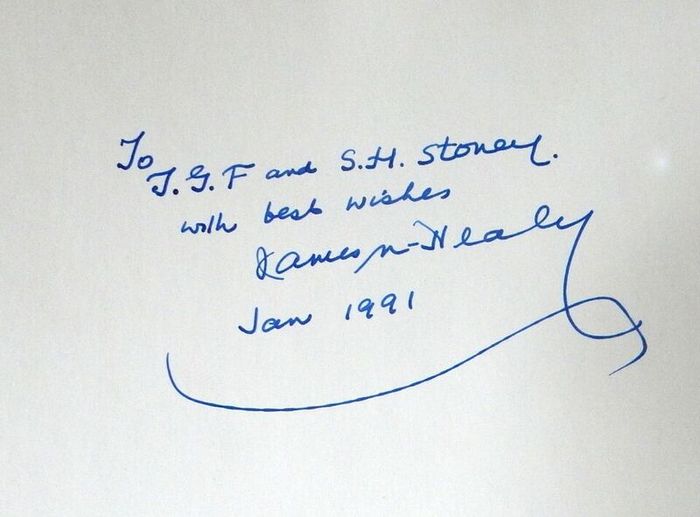 To
T.G.F and S.H. Stoney.
with best wishes
James N-Healy
Jan 1991